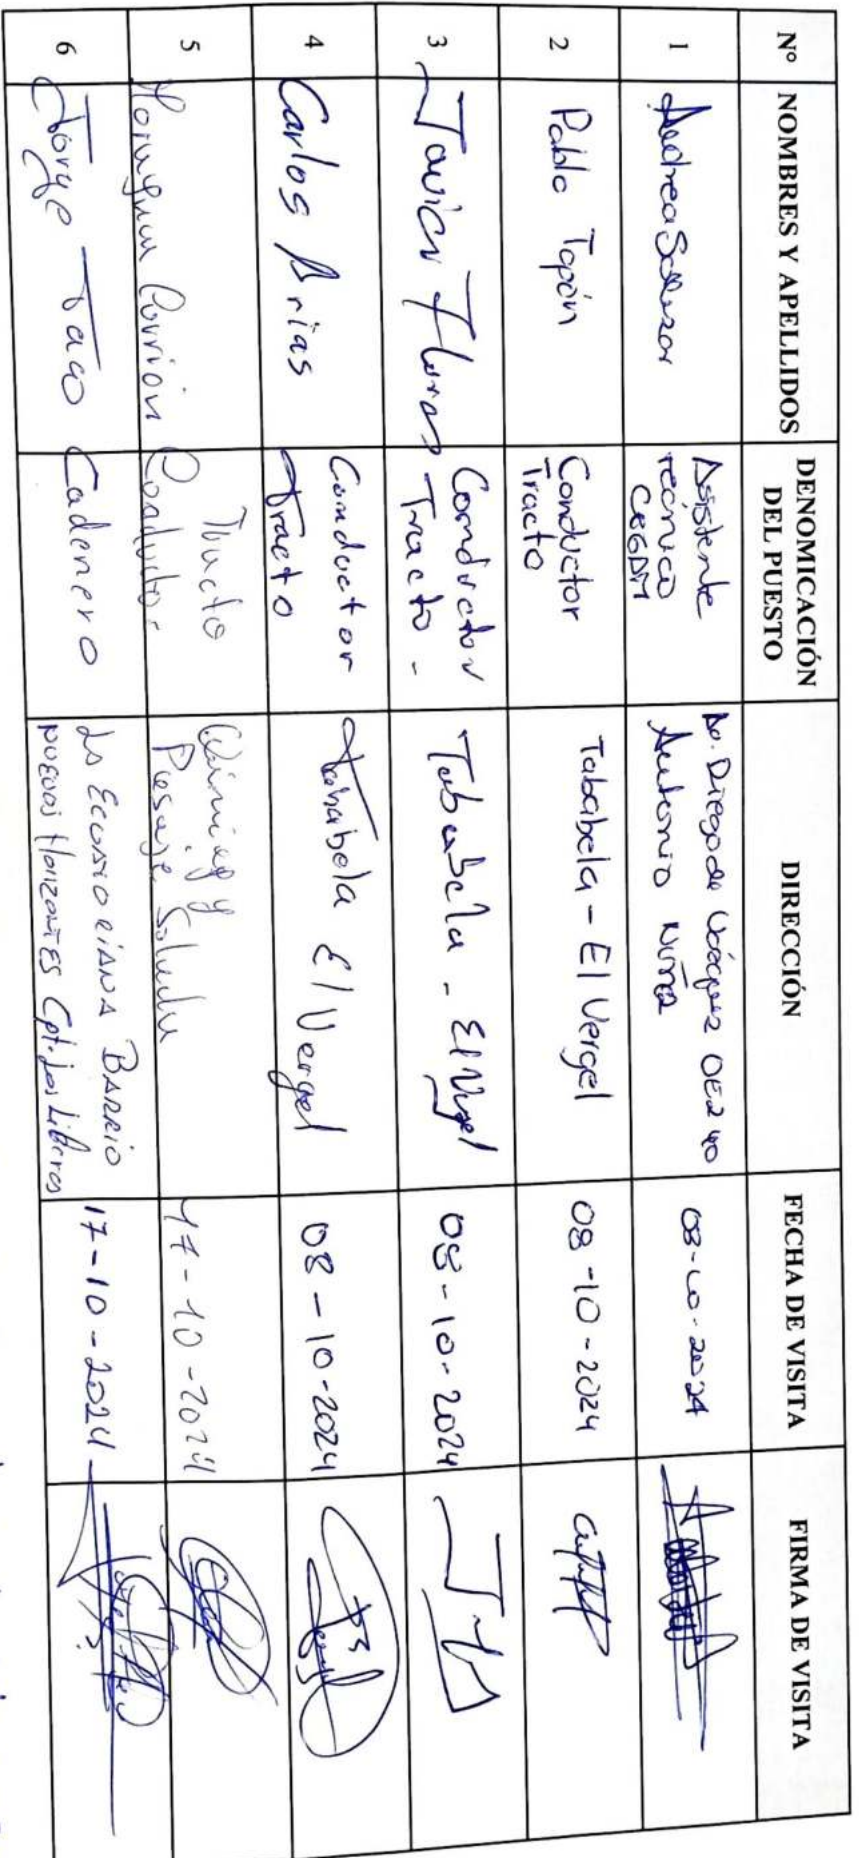 Nº NOMBRES Y APELLIDOS DENOMICACIÓN DEL PUESTO DIRECCIÓN FECHA DE VISITA FIRMA DE VISITA
1 Andrea Salazar Asistente Tecnico Av. Diego de Vásquez OE2 40 Antonio 08-10-2024
2 Pablo Tapón Conductor Tracto Tababela - El Vergel 08-10-2024
3 Javier Flores Conductor Tracto - Tababela - El Vergel 08-10-2024
4 Carlos Arias Conductor Tracto Tababela El Vergel 08-10-2024
5 Carrión Tracto Conductor Pasaje 17-10-2024
6 Jorge Taco Cadenero La Ecuatoriana Barrio nuevos Horizontes Cpt. Los Liberos 17-10-2024